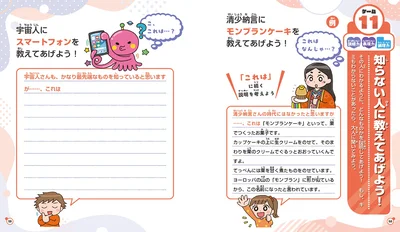 ゲーム
11
知らない人に教えてあげよう!
例
清少納言に
モンブランケーキを
教えてあげよう!
これは
なんしゃ…?
「これは」
に続く
説明を考えよう
清少納言さんの時代にはなかったと思いますが
……、これは「モンブランケーキ」といって、栗
でつくったお菓子です。
カップケーキの上に生クリームをのせて、そのま
わりを栗のクリームでぐるっとおおっていくんで
すよ。
てっぺんには栗を甘く煮たものをのせています。
ヨーロッパの山の「モンブラン」に形が似ている
から、この名前になったと言われています。
宇宙人に
スマートフォンを
教えてあげよう!
これは…?
宇宙人さんも、かなり最先端なものを知っていると思います
が……、これは